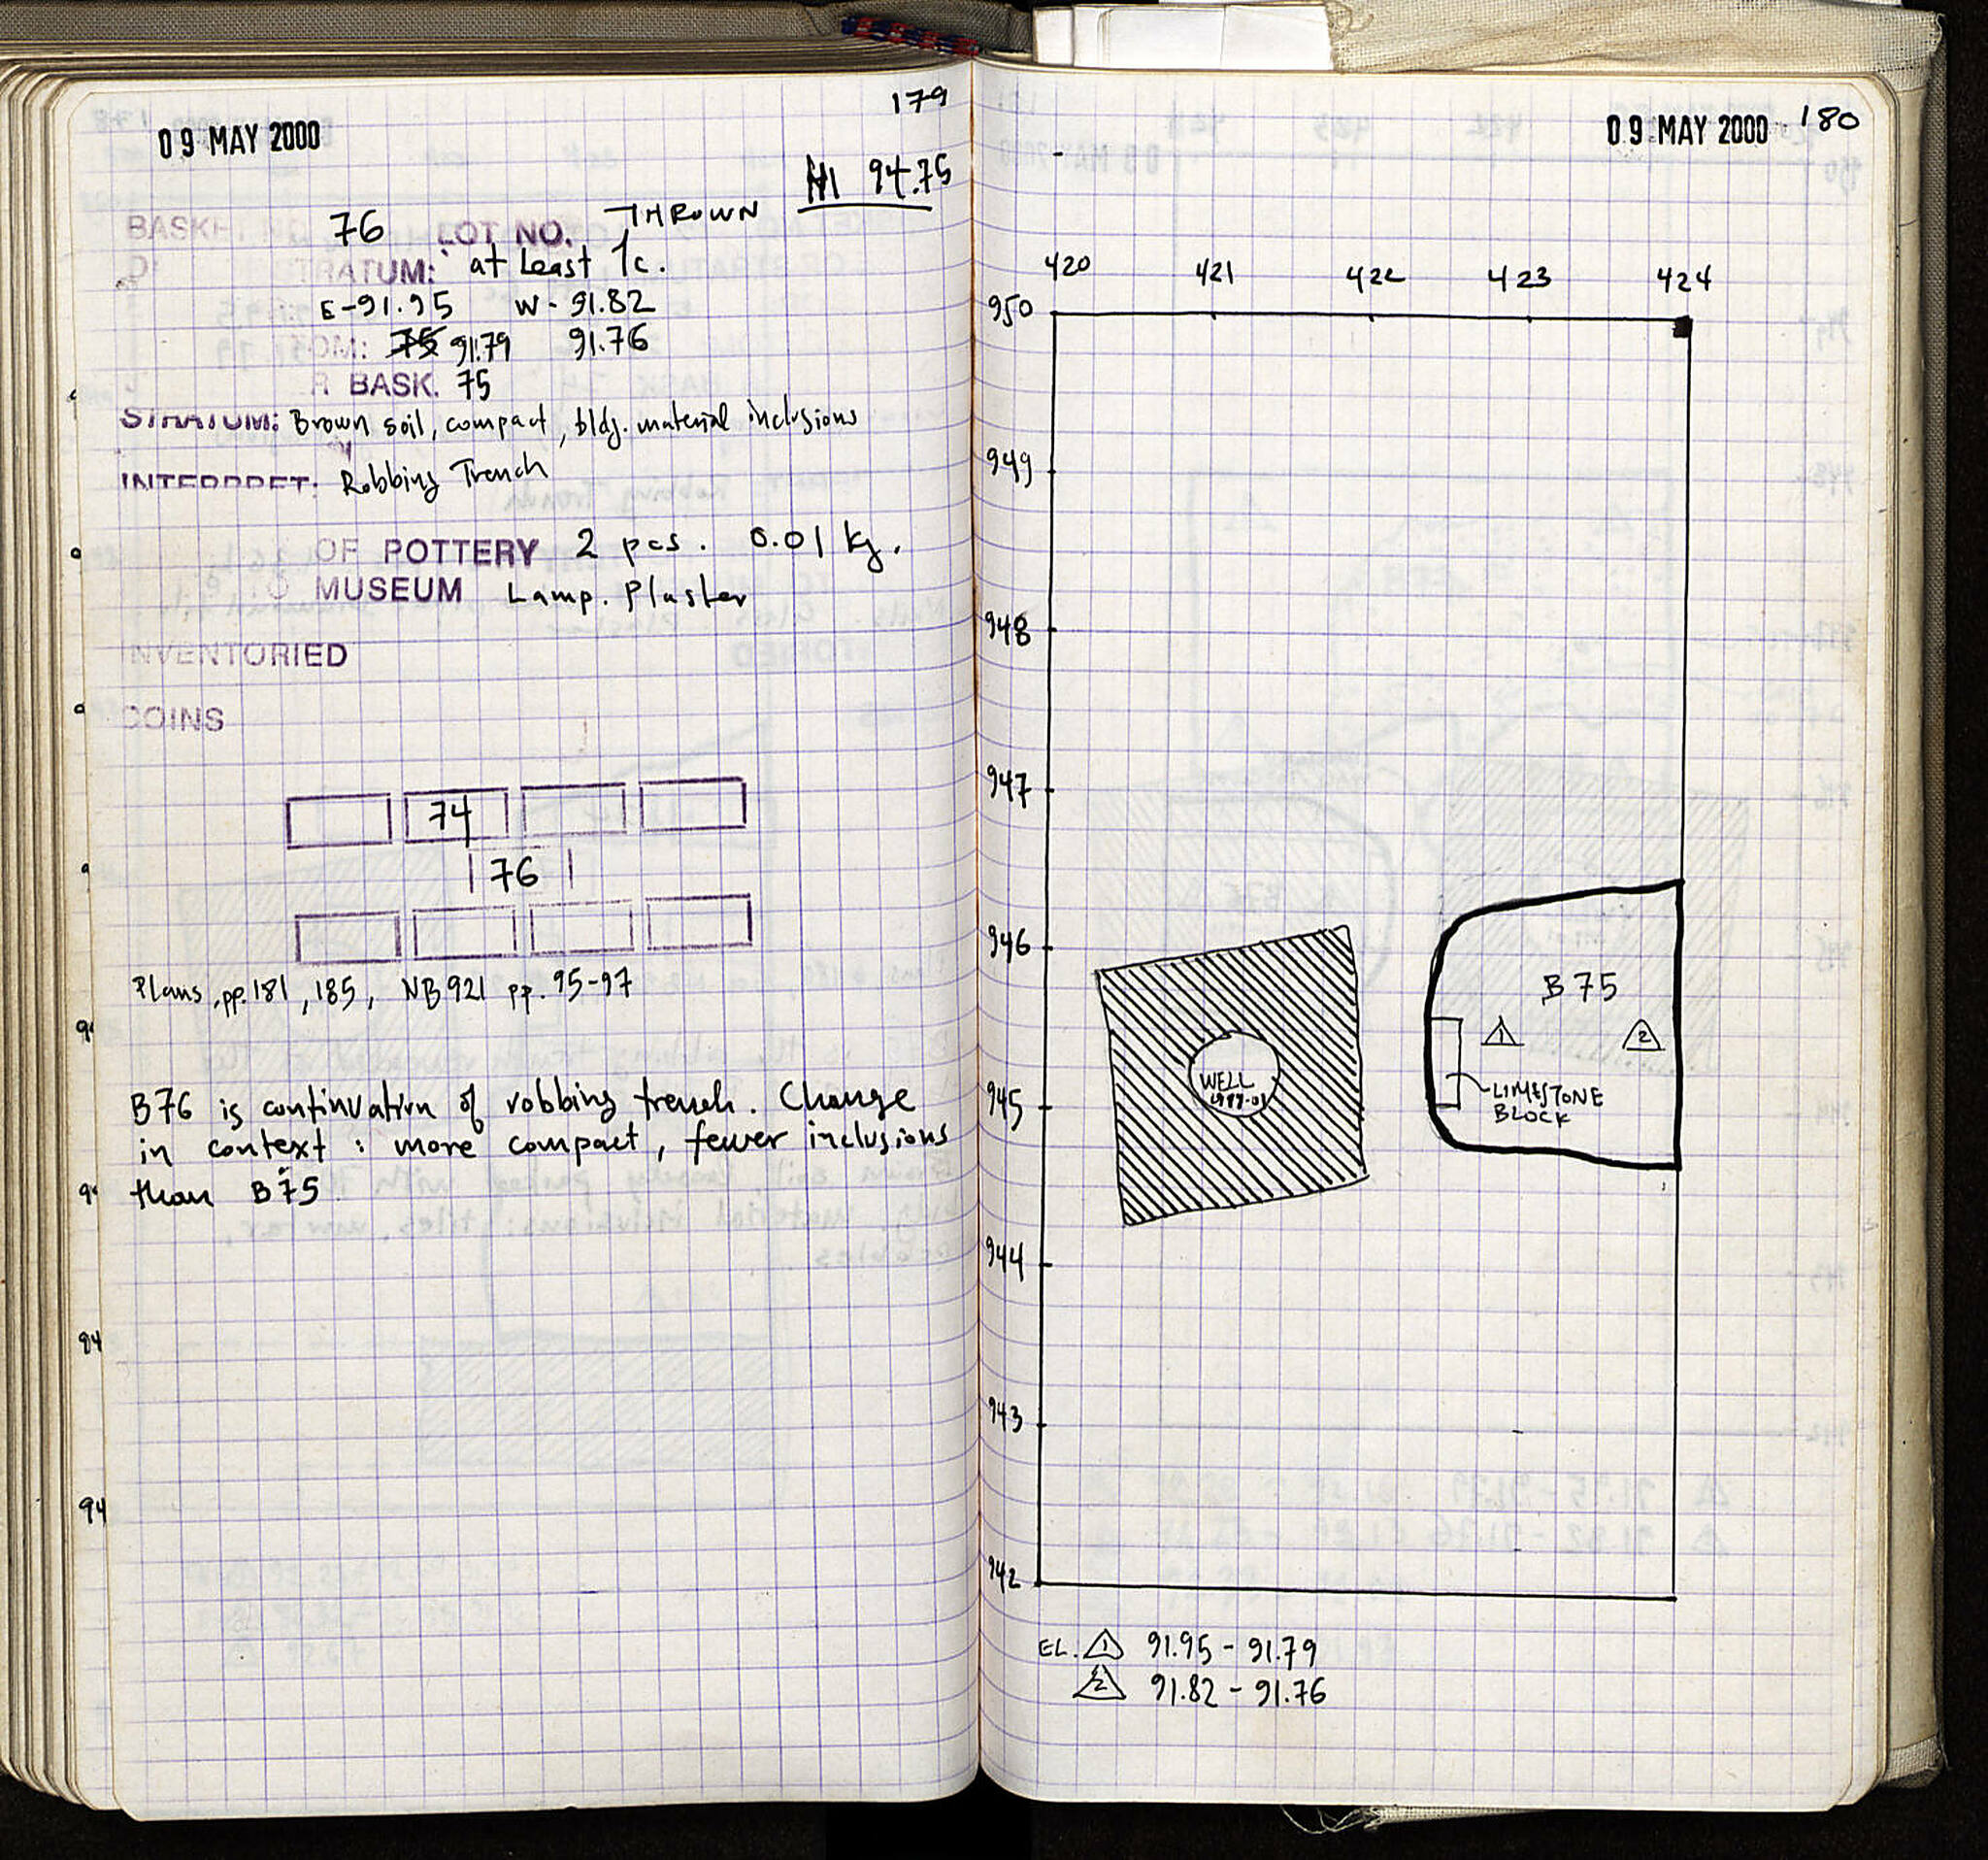 09 MAY 2000
179
HI 94.75
BASKET 76 LOT NO. THROWN
TRATUM: at least 1c.
E-91.95 W-91.82
OM: 91.79 91.76
R BASK. 75
STRATUM: Brown soil, compact, bldg. material inclusions
INTERPRET: Robbing Trench
OF POTTERY 2 pcs. 0.01 kg.
TO MUSEUM Lamp. Plaster
INVENTORIED
COINS
74
76
Plans, pp. 181, 185, NB 921 pp. 95-97
B76 is continuation of robbing trench. Change
in context: more compact, fewer inclusions
than B75
09 MAY 2000 180
420 421 422 423 424
950
949
948
947
946
945
944
943
942
B 75
1 2
WELL
LIMESTONE
BLOCK
EL. 1 91.95 - 91.79
2 91.82 - 91.76